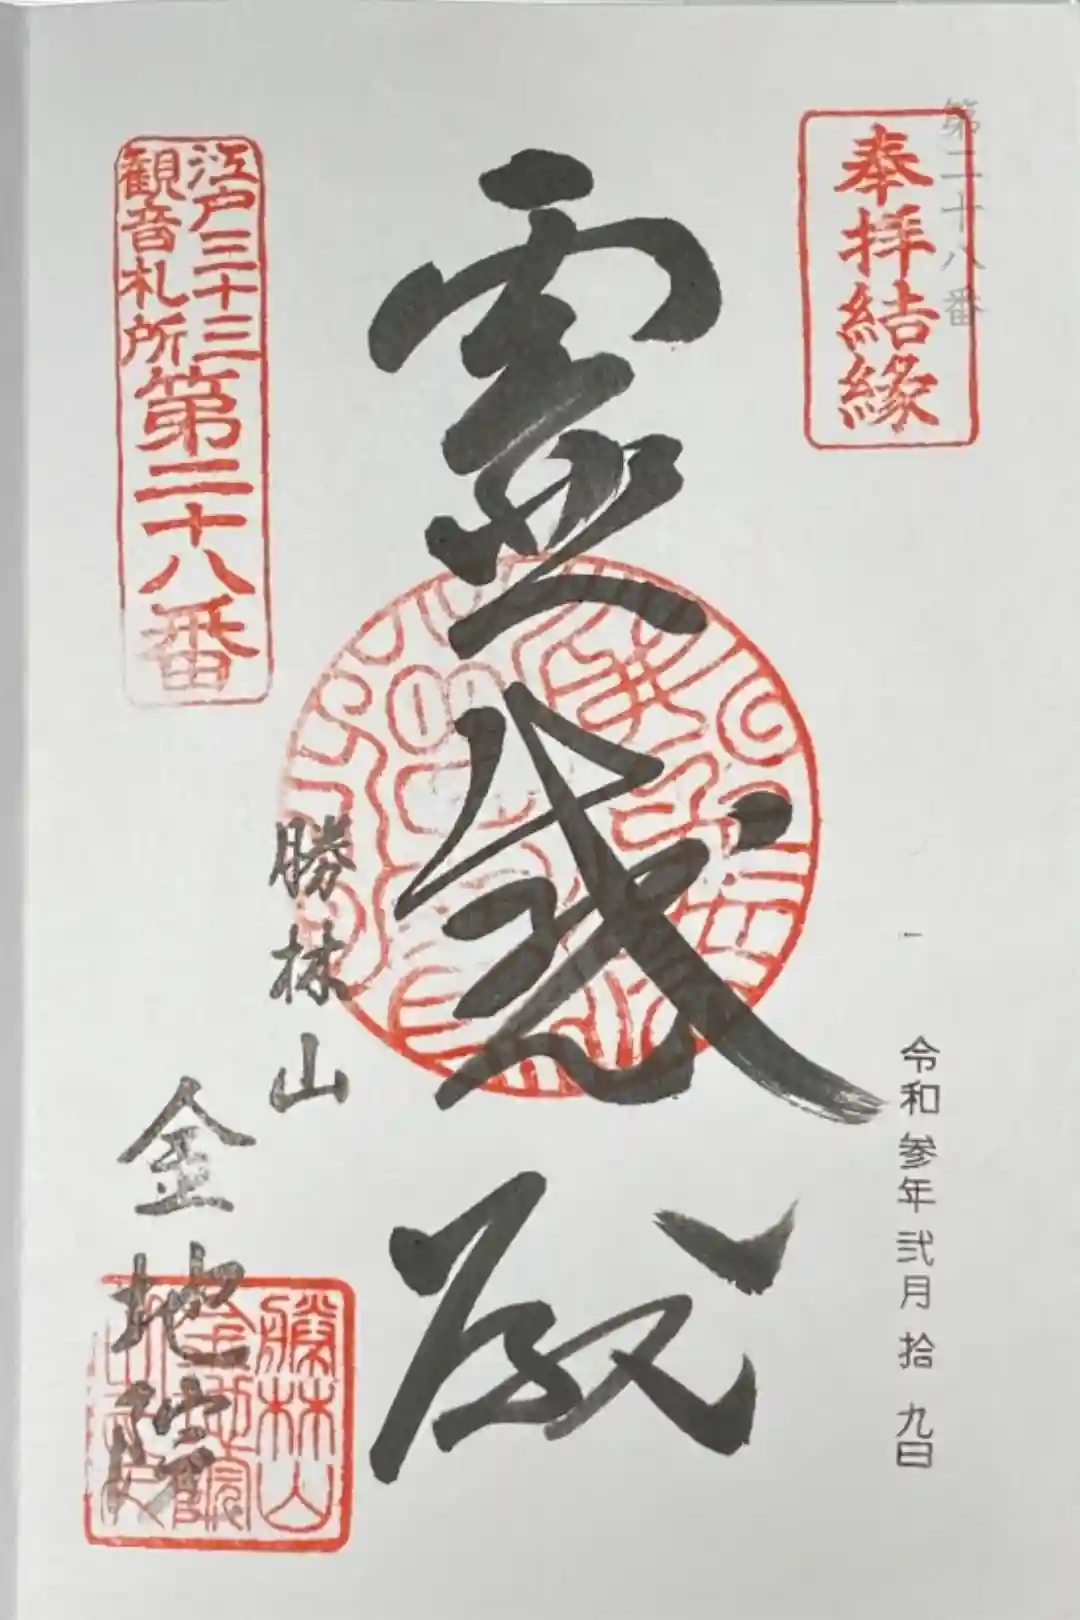 第二十八番
奉拝結緣
令和参年弐月拾九日
霊感殿
勝林山
金地院
江戸三十三
観音札所
第二十八番
勝林山
金地院